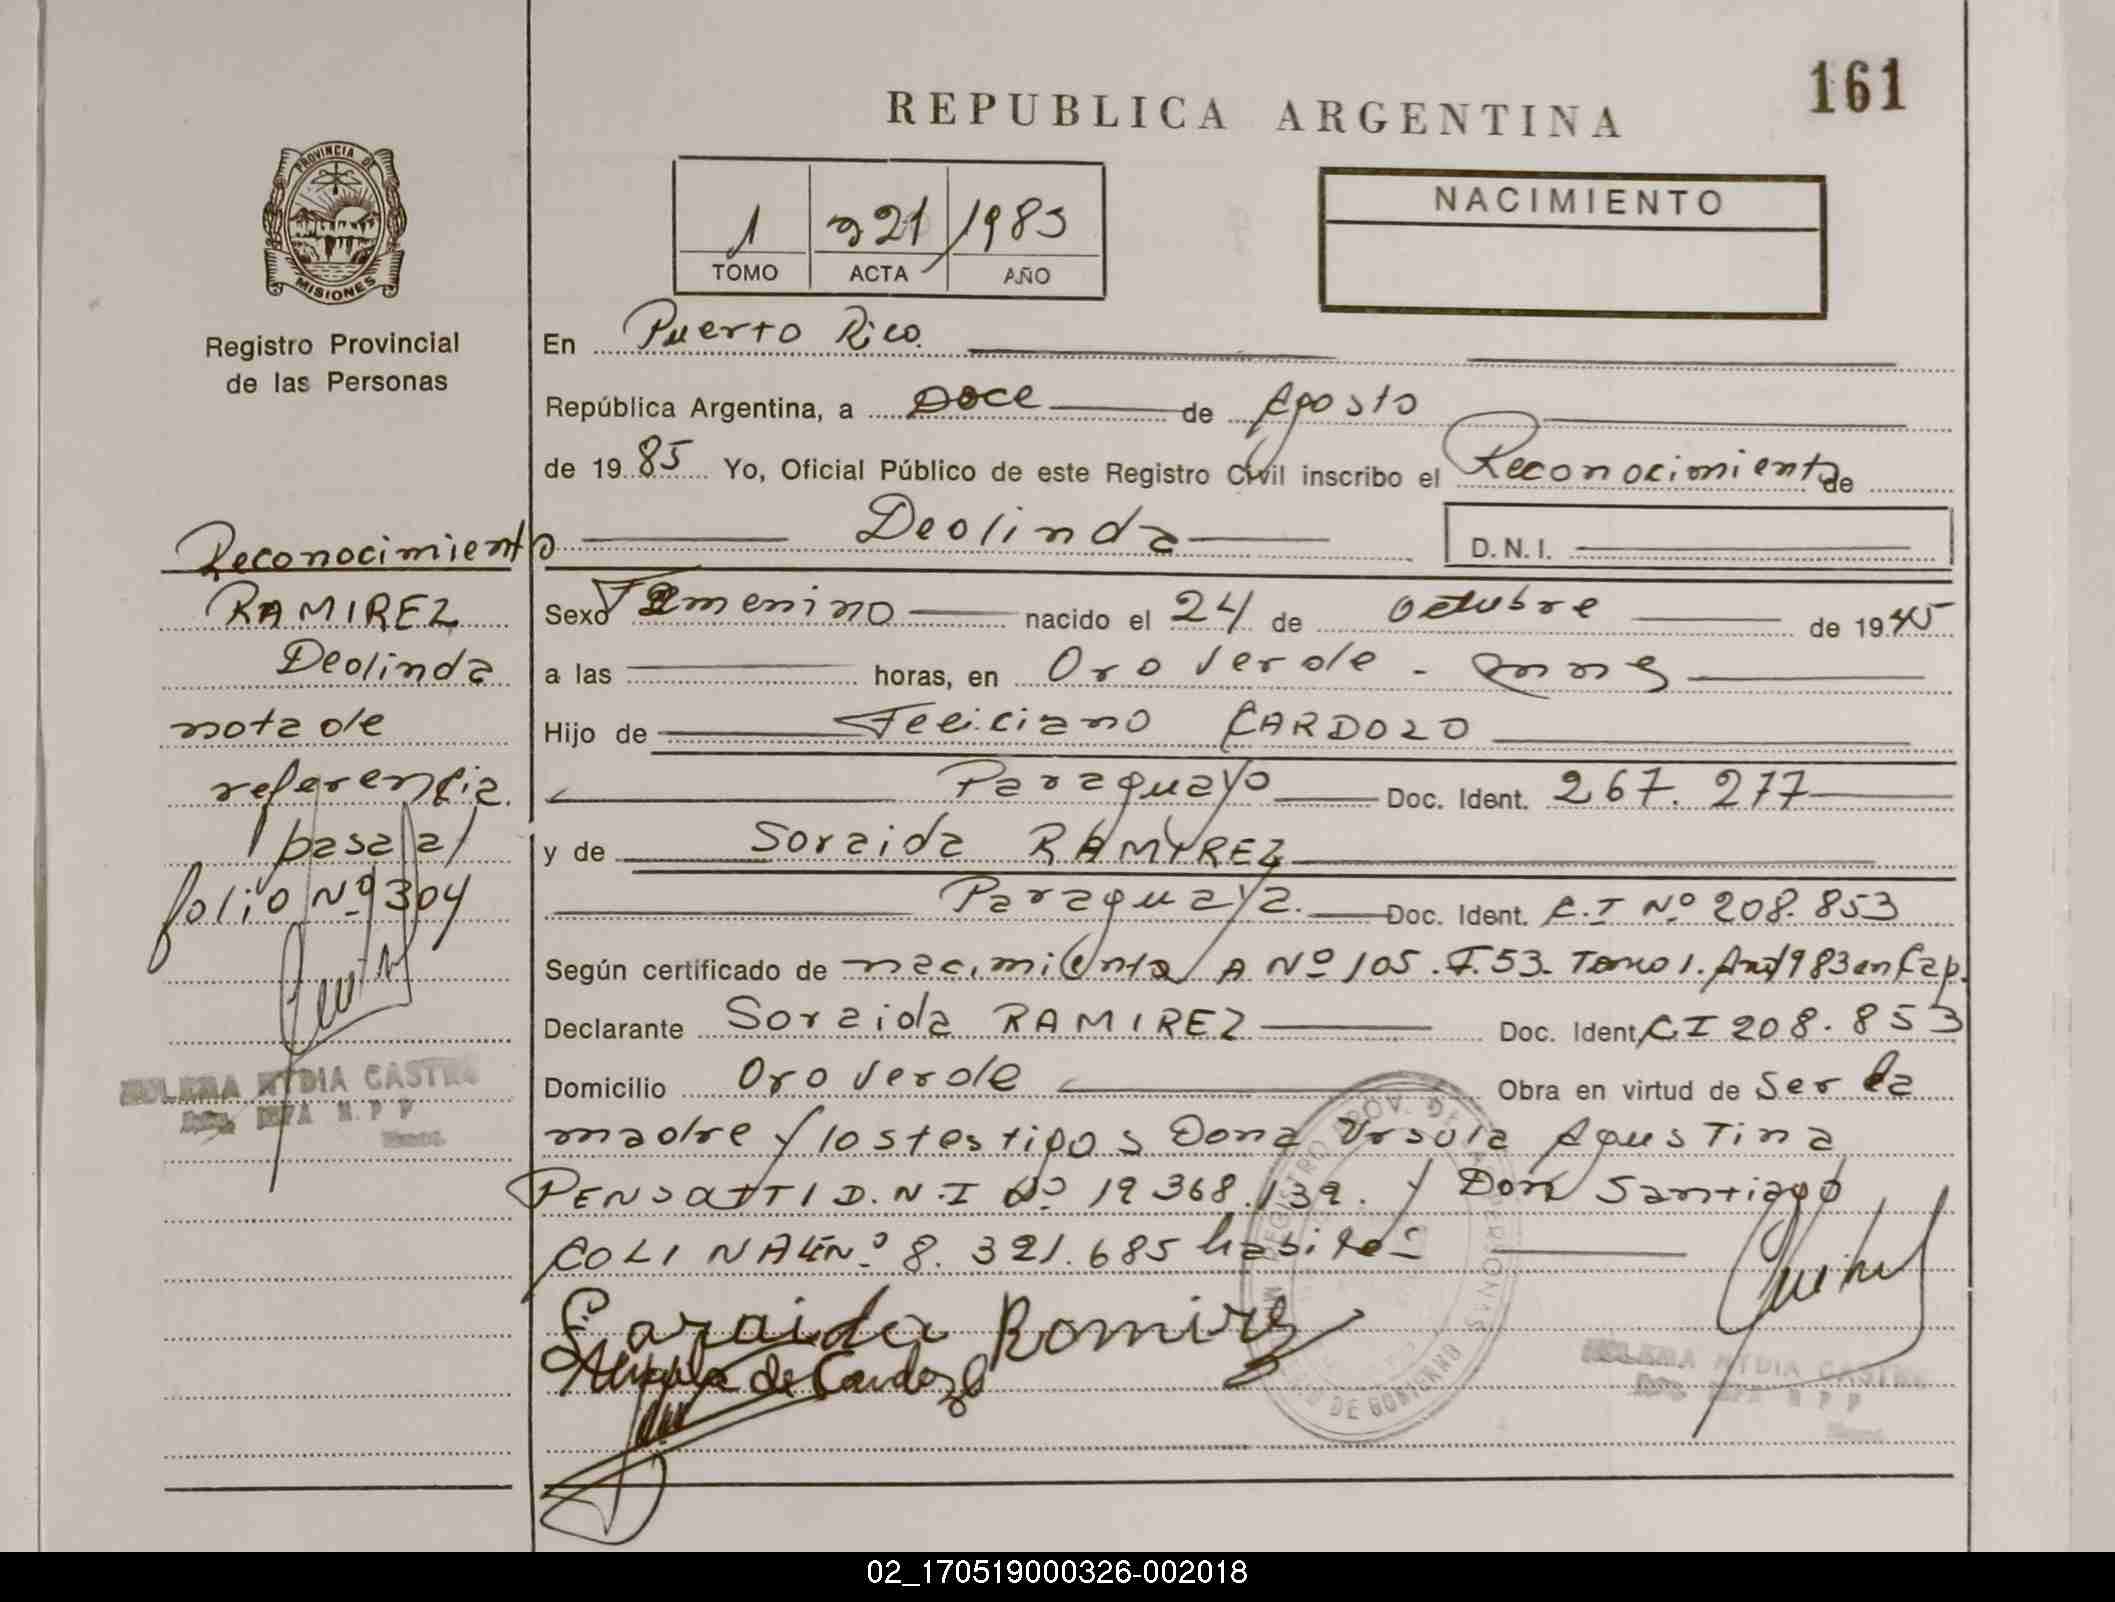 161
REPUBLICA ARGENTINA
PROVINCIA DE
MISIONES
Registro Provincial
de las Personas
1 321 1985
TOMO ACTA AÑO
NACIMIENTO
En Puerto Rico.
República Argentina, a Doce de Agosto
de 1985 Yo, Oficial Público de este Registro Civil inscribo el Reconocimiento de
Deolinda D.N.I.
Reconocimiento
RAMIREZ
Deolinda
nota de
referencia.
pasa al
folio Nº 304
Sexo Femenino nacido el 24 de octubre de 1945
a las horas, en Oro Verde - mns
Hijo de Feliciano CARDOZO
Paraguayo Doc. Ident. 267.277
y de Soraida RAMIREZ
Paraguaya. Doc. Ident. C.I Nº 208.853
Según certificado de nacimiento A Nº 105. F.53. Tomo 1. Año 1983 en Cap.
Declarante Soraida RAMIREZ Doc. Ident. CI 208.853
Domicilio Oro Verde Obra en virtud de Ser la
madre y los testigos Dona Ursula Agustina
PENSOTTI D.N.I Nº 12 368.139. y Don Santiago
COLINA LE Nº 8.321.685 habiles
Soraida Romires
de Cardozo
MYDIA CASTRO
MYDIA CASTRO
02_170519000326-002018